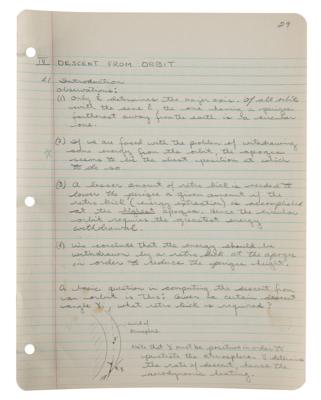 29
IV DESCENT FROM ORBIT
4.1 Introduction
Observations:
(1) Only E determines the major axis. Of all orbits
with the same E, the one having a perigee
farthest away from the earth is a circular
one.
(2) If we are faced with the problem of withdrawing
some energy from the orbit, the apogee
seems to be the best position at which
to do so
(3) A lesser amount of retro kick is needed to
lower the perigee a given amount if the
retro kick (energy extraction) is accomplished
at the highest apogee. Hence the circular
orbit requires the greatest energy
withdrawal.
(4) We conclude that the energy should be
withdrawn by a retro kick at the apogee
in order to reduce the perigee height.
A basic question in computing the descent from
an orbit is this: Given a certain descent
angle γ, what retro kick is required?
end of
atmosphere
Note that γ must be positive in order to
penetrate the atmosphere. γ determines
the rate of descent, hence the
aerodynamic heating.